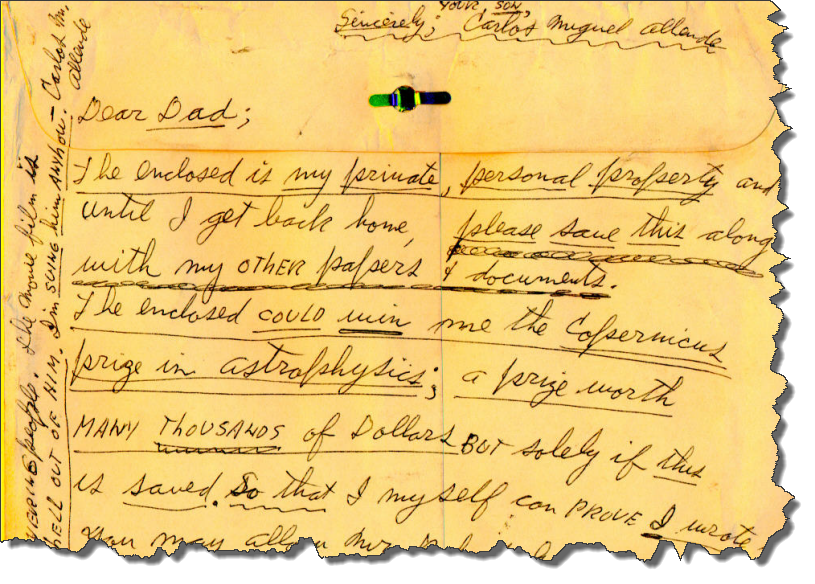 YOUR SON,
Sincerely; Carlos Miguel Allende
Dear Dad;
The enclosed is my private, personal property and
until I get back home, please save this along
with my OTHER papers & documents.
The enclosed COULD win me the Copernicus
prize in astrophysics; a prize worth
MANY THOUSANDS of Dollars BUT solely if this
is saved. So that I myself can PROVE I wrote
You may allow
people. The movie film is
HELL OUT OF HIM. I'm SUING him ANYHOW. - Carlos M.
Allende